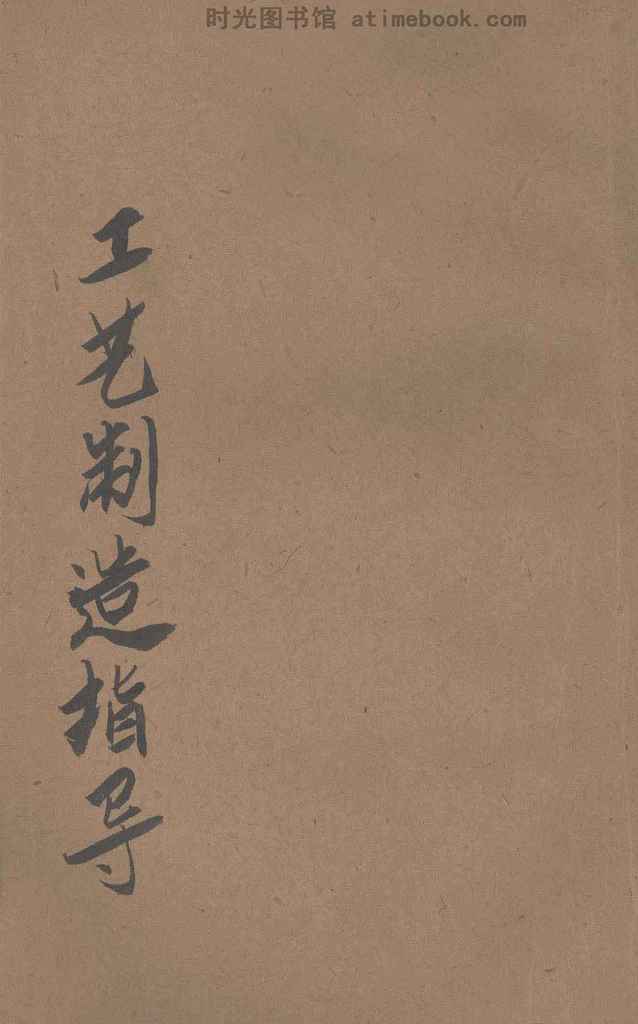 时光图书馆 atimebook.com
工艺制造指导